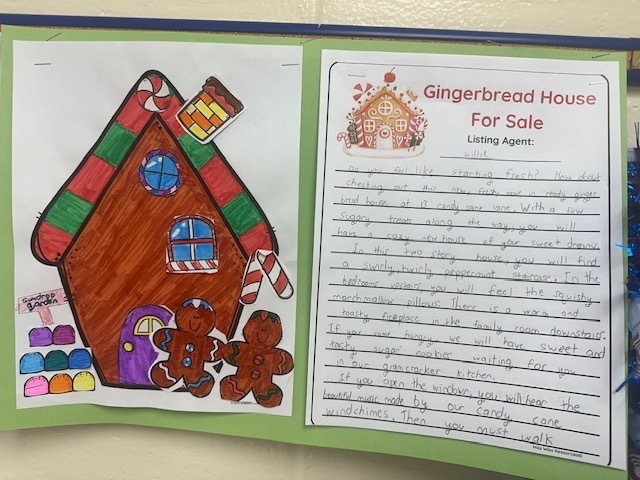 Gumdrop
garden
Gingerbread House
For Sale
Listing Agent:
Willie
Do you feel like starting fresh? How about
checking out this new, fresh move in ready ginger
bread house at 12 candy cane lane. With a few
sugary treats along the way, you will
have a cozy new house of your sweet dreams.
In this two story house, you will find
a swirly, twirly peppermint staircase. In the
bedrooms upstairs you will feel the squishy
marshmallow pillows. There is a warm and
toasty fireplace in the family room downstairs.
If you come hungry, we will have sweet and
tasty sugar cookies waiting for you
in our gramcracker kitchen.
If you open the windows, you will hear the
beautiful music made by our candy cane
windchimes. Then you must walk
Miss Wiss Resources©